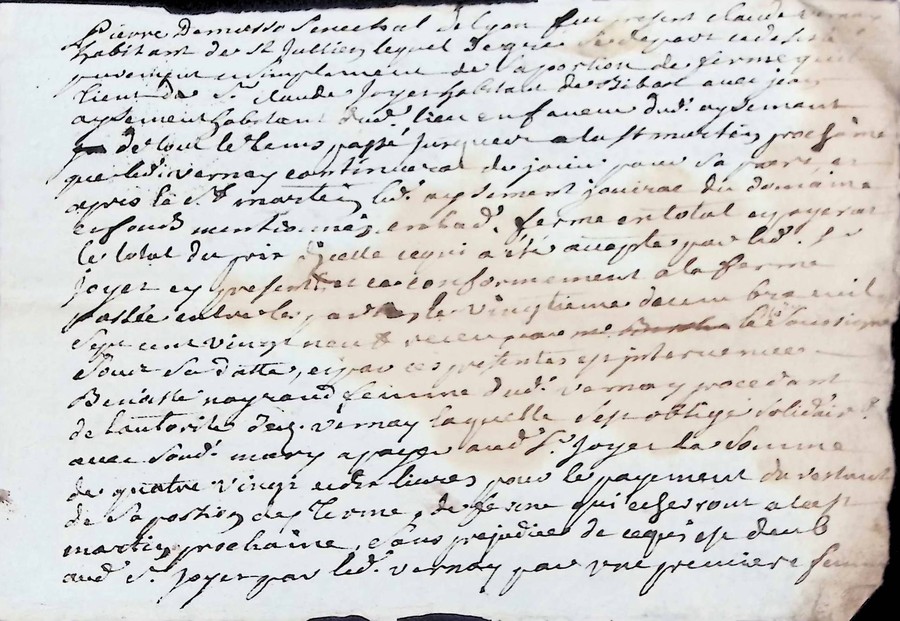 Pierre Demasso Senechal de Lyon fut present Claude Vernay
habitant de St Jullien lequel de gré se depart
purement et simplement de la portion de ferme quil
tient de Sr Claude Joyer habitant de Bibost avec jean
aysement habitant dud. lieu en faveur dud. aysement
de tout le tems passé jusques a la st martin prochaine
que led. vernay continuera de jouir pour sa part et
apres la St martin led. aysement jouirat du domaine
et fonds mentionnés en lad. ferme en total et payerat
le total du prix dicelle ce qui a été accepté par led. Sr
joyer cy present et ce conformement a la ferme
passée entre les parties le vingtieme decembre mil
sept cent vingt neuf receu par me le soussigné
sous sa datte, et par ces presentes est intervenue
Benoiste nayraud femme dud. vernay procedant
de lautorité dud. vernay laquelle sest obligé solidair.t
avec sond. mary a payer aud. Sr Joyer la somme
de quatre vingt et dix livres pour le payement du restant
de sa portion des terme de ferme qui echerront a la st
martin prochaine, sans prejudice de ce qui est deub
aud. Sr Joyer par led. vernay par une premiere ferme